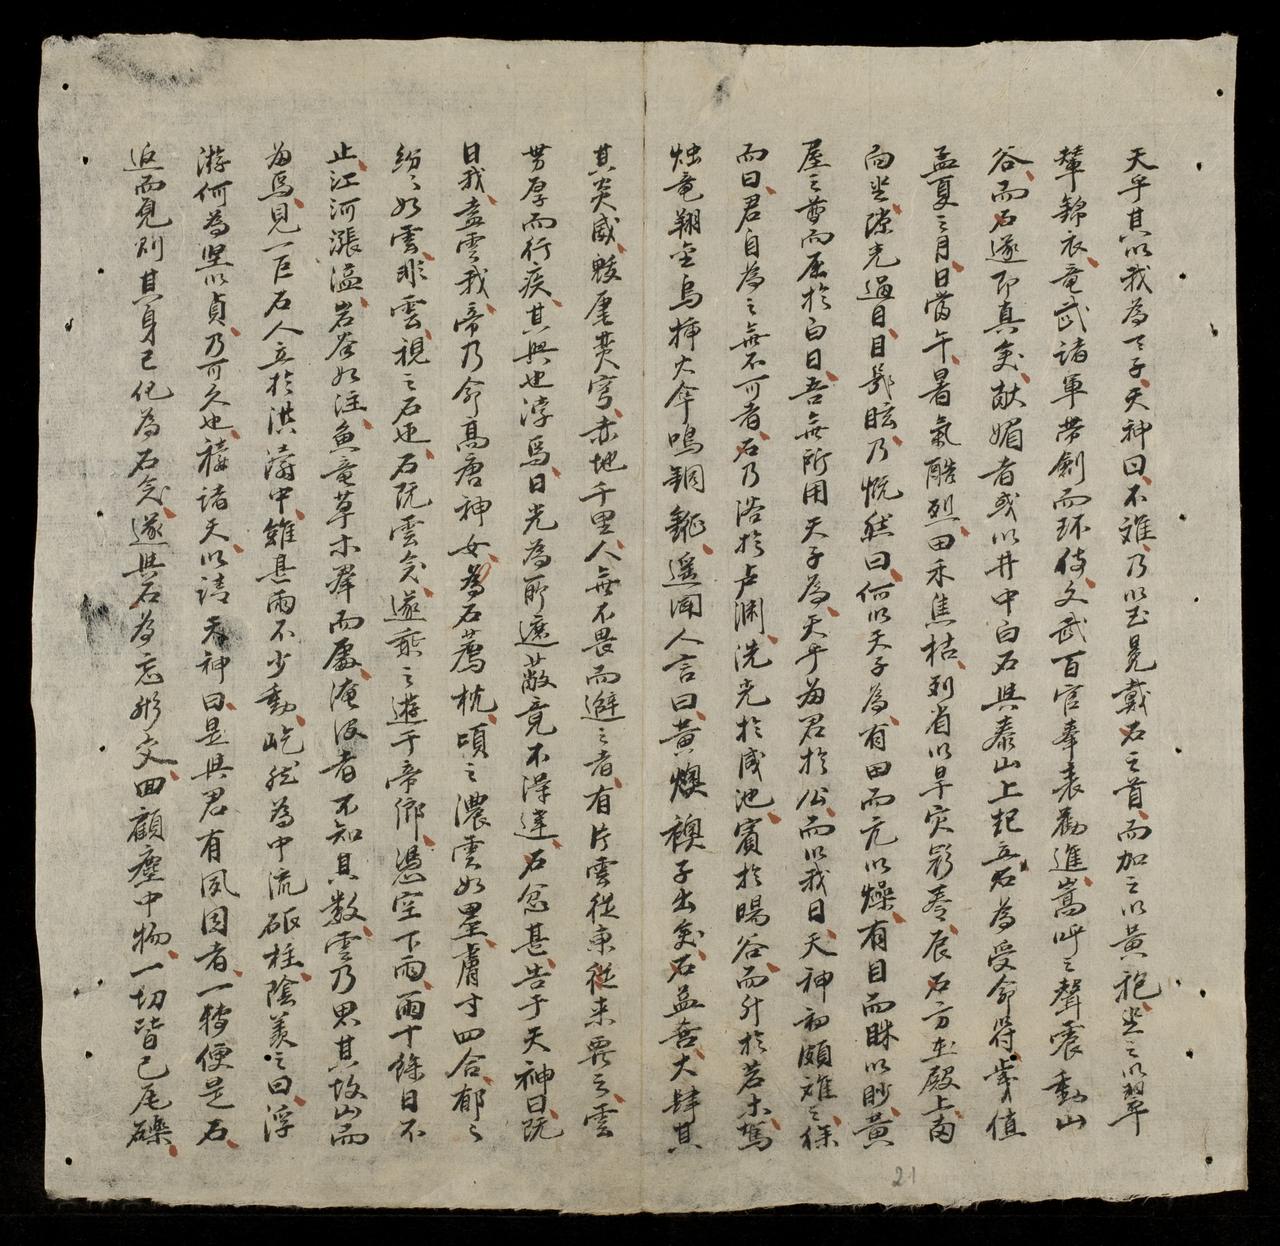 天乎其以我為天子天神曰不難乃以玉冕戴石之首而加之以黃袍坐之以翠
輦錦衣竜武諸軍帶劍而環侍文武百官奉表勸進嵩呼之聲震動山
谷而石遂即真矣献媚者或以井中白石與泰山上起立石為受命符歲值
孟夏之月日當午暑氣酷烈田禾焦枯列省以旱災彰奏辰石方坐殿上南
向坐隙光過目目鄂眩乃慨然曰何以天子為有田而亢以燥有目而眯以眇黃
屋之尊而屈於白日吾無所用天子為天乎為君於公而以我日天神初頗難之徐
而曰君自為之無不可者石乃浴於虞渊洗光於咸池賓於暘谷而升於若木駕
烛竜翔金烏揷火傘鳴銅鉦遥聞人言曰黃襖襖子出矣石益喜大肆其
其炎威毀崖焚穹赤地千里人無不畏而避之者有片雲從東從來覆之雲
勢厚而行疾其興也浡焉日光為所遮蔽竟不得達石忿甚告于天神曰既
日我盍雲我帝乃命高唐神女為石薦枕頃之濃雲如墨膚寸四合郁之
紛之如雲非雲視之石也石既雲矣遂乘之遊于帝鄉憑空下雨雨十餘日不
止江河漲溢岩谷如注魚竜草木群而處淹没者不知其数雲乃思其故山而
為焉見一巨石人立於洪濤中雖甚雨不少動屹然為中流砥柱陰羡之曰浮
游何為坚以貞乃可久也禱諸天以請天神曰是與君有夙因者一轉便是石
返而覓則其身已化為石矣遂與石為忘形交回顧塵中物一切皆已瓦礫
21